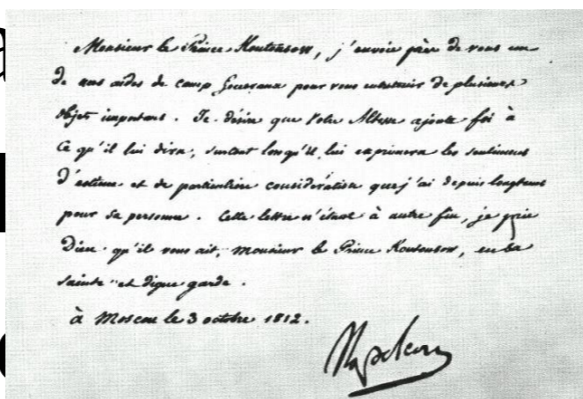 Monsieur le Prince Koutousow, j'envoie près de vous un
de mes aides de camp généraux pour vous entretenir de plusieurs
objet importans. Je désire que Votre Altesse ajoute foi à
ce qu'il lui dira, surtout lorsqu'il lui exprimera les sentimens
d'estime et de particulière considération que j'ai depuis longtems
pour sa personne. Cette lettre n'étant à autre fin, je prie
Dieu qu'il vous ait, Monsieur le Prince Koutousow, en sa
sainte et digne garde.
à Moscou le 3 octobre 1812.
Napoleon